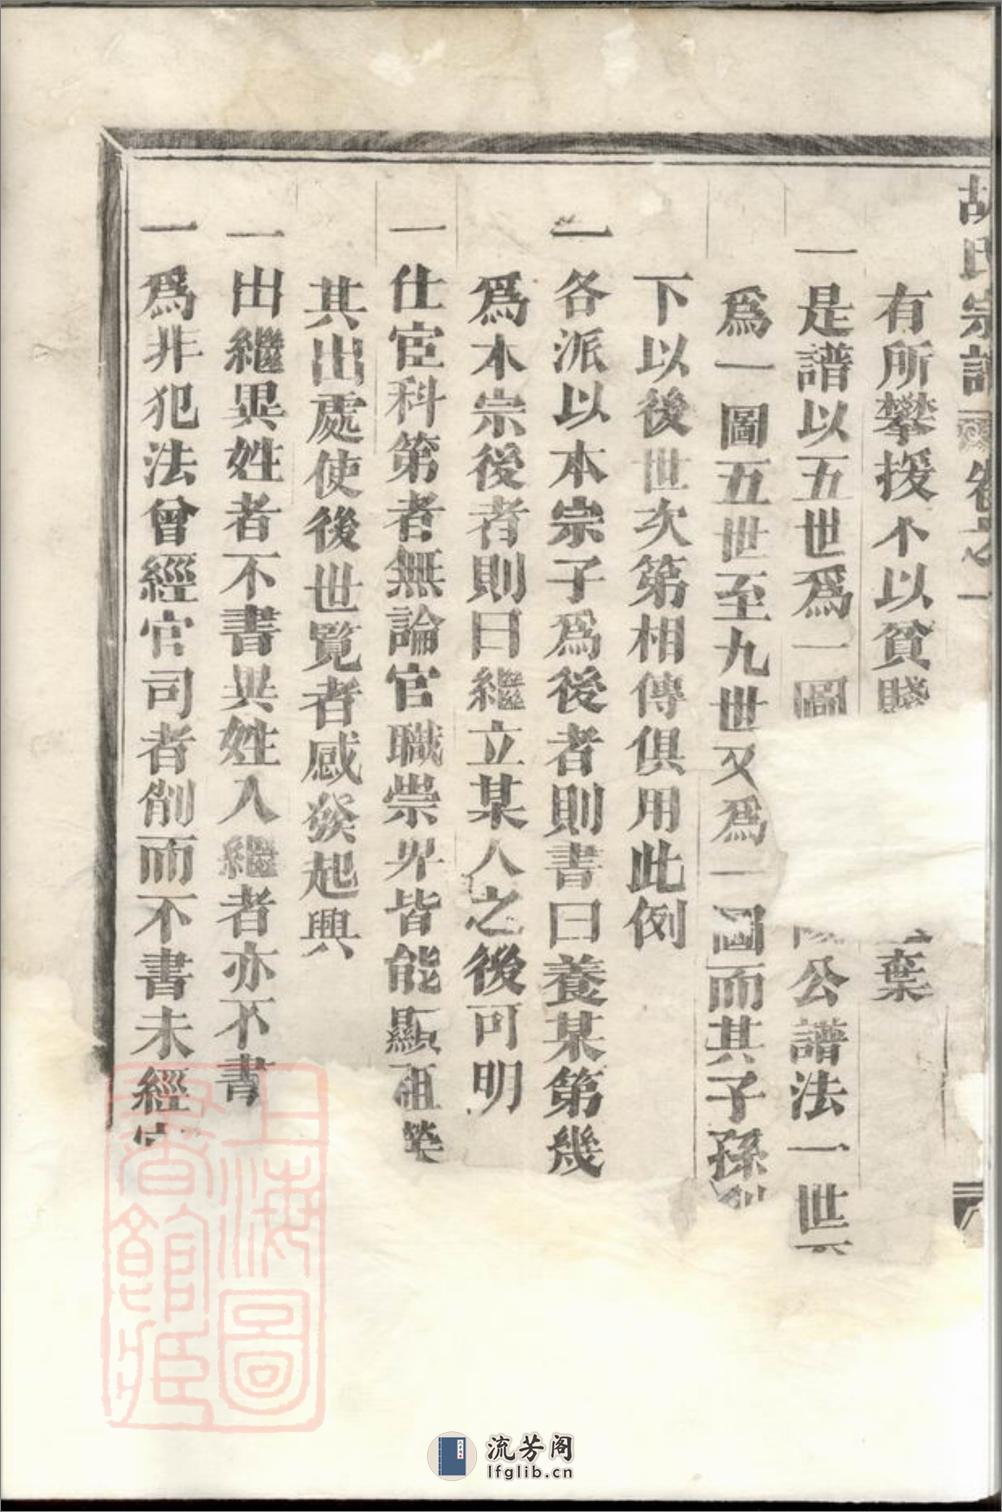 胡氏宗譜 卷之一
有所攀援不以貧賤
葉
一是譜以五世爲一圖
公譜法一世
爲一圖五世至九世又爲一圖而其子孫
下以後世次第相傳俱用此例
一各派以本宗子爲後者則書曰養某第幾
爲本宗後者則曰繼立某人之後可明
一仕宦科第者無論官職崇卑皆能顯祖榮
其出處使後世覽者感發起興
一出繼異姓者不書異姓入繼者亦不書
一爲非犯法曾經官司者削而不書未經官
上海圖書館藏
流芳阁
lfglib.cn